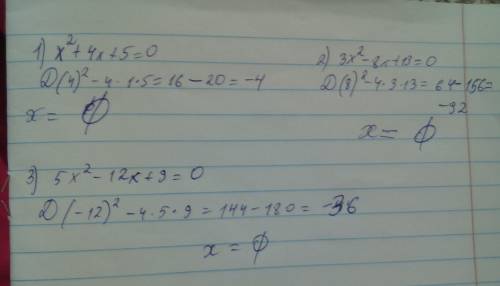 1) x² + 4x + 5 = 0
D (4)² - 4 · 1 · 5 = 16 - 20 = -4
x = ∅
2) 3x² - 8x + 13 = 0
D (8)² - 4 · 3 · 13 = 64 - 156 =
-92
x = ∅
3) 5x² - 12x + 9 = 0
D (-12)² - 4 · 5 · 9 = 144 - 180 = -36
x = ∅